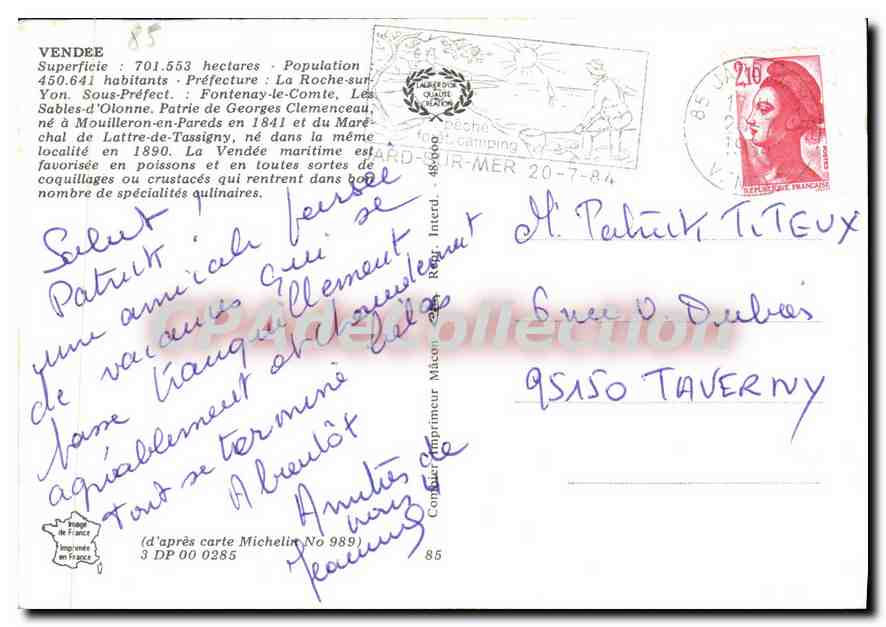 85
VENDEE
Superficie : 701.553 hectares - Population :
450.641 habitants - Préfecture : La Roche-sur-
Yon. Sous-Préfect. : Fontenay-le-Comte, Les
Sables-d'Olonne. Patrie de Georges Clemenceau,
né à Mouilleron-en-Pareds en 1841 et du Maré-
chal de Lattre-de-Tassigny, né dans la même
localité en 1890. La Vendée maritime est
favorisée en poissons et en toutes sortes de
coquillages ou crustacés qui rentrent dans bon
nombre de spécialités culinaires.
LAURIER D'OR
QUALITÉ
CRÉATION
pêche
camping
JARD-SUR-MER 20-7-84
85 JARD
2,10
POSTES
REPUBLIQUE FRANÇAISE
Salut !
Patrick !
une amicale pensée
de vacances qui se
passe tranquillement
agréablement et chaudement
tout se termine hélas
A bientôt
Amitiés de
nous
Mr Patrick TITEUX
6 rue V. Dubois
95150 TAVERNY
Combier Imprimeur Mâcon Repr. Interd. - 48-000
CPAdeCollection
Image
de France
Imprimée
en France
(d'après carte Michelin No 989)
3 DP 00 0285
85